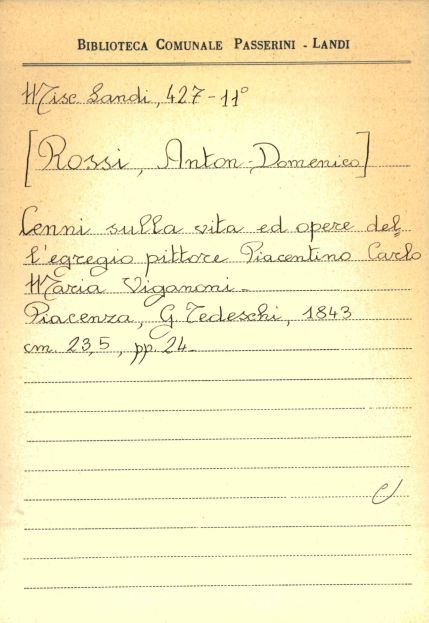 BIBLIOTECA COMUNALE PASSERINI - LANDI
Misc. Landi, 427-11°
[Rossi, Anton-Domenico]
Cenni sulla vita ed opere del=
l'egregio pittore Piacentino Carlo
Maria Viganoni-
Piacenza, G. Tedeschi, 1843
cm. 23,5, pp. 24-